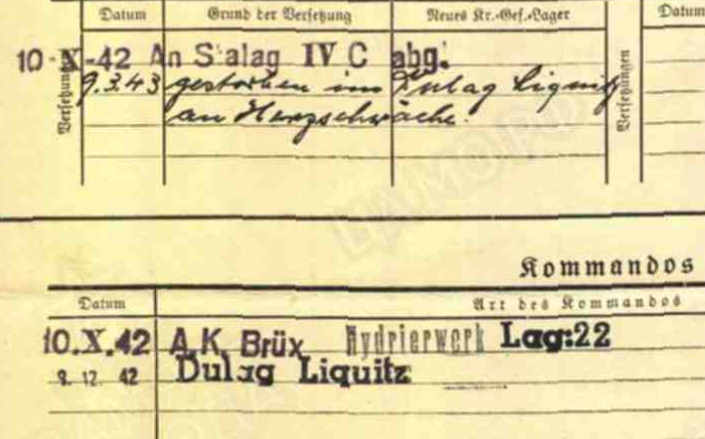 Datum Grund der Versetzung Neues Kr.-Gef.-Lager Datum
10-X-42 An Stalag IV C abg.
9.3.43 gestorben im Dulag Liquitz
an Herzschwäche.
Versetzungen
Versetzungen
Kommandos
Datum Art des Kommandos
10.X.42 A.K. Brüx Hydrierwerk Lag:22
9. 12. 42 Dulag Liquitz
ЦАМО.РФ